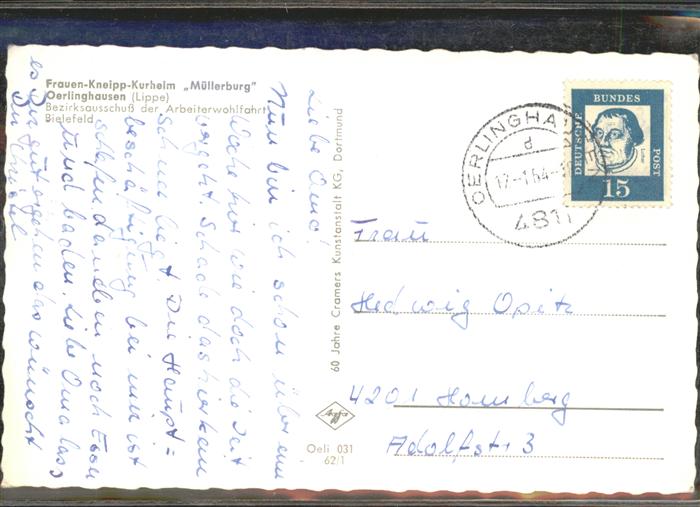 Frauen-Kneipp-Kurheim „Müllerburg"
Oerlinghausen (Lippe)
Bezirksausschuß der Arbeiterwohlfahrt
Bielefeld
Liebe Oma!
Nun bin ich schon über eine
Woche hier wie doch die Zeit
vergeht. Schade das hier kein
Schnee liegt. Die Haupt=
beschäftigung bei mir ist
schlafen dann noch Essen
und baden. Liebe Oma lass
es Dir gut gehen das wünscht
Dir
60 Jahre Cramers Kunstanstalt KG, Dortmund
Agfa
Oeli 031
62/1
OERLINGHAUSEN
d
17.-1.64-
4811
DEUTSCHE
BUNDES
POST
Luther
15
Frau
Hedwig Opitz
4201 Homberg
Adolfstr 3